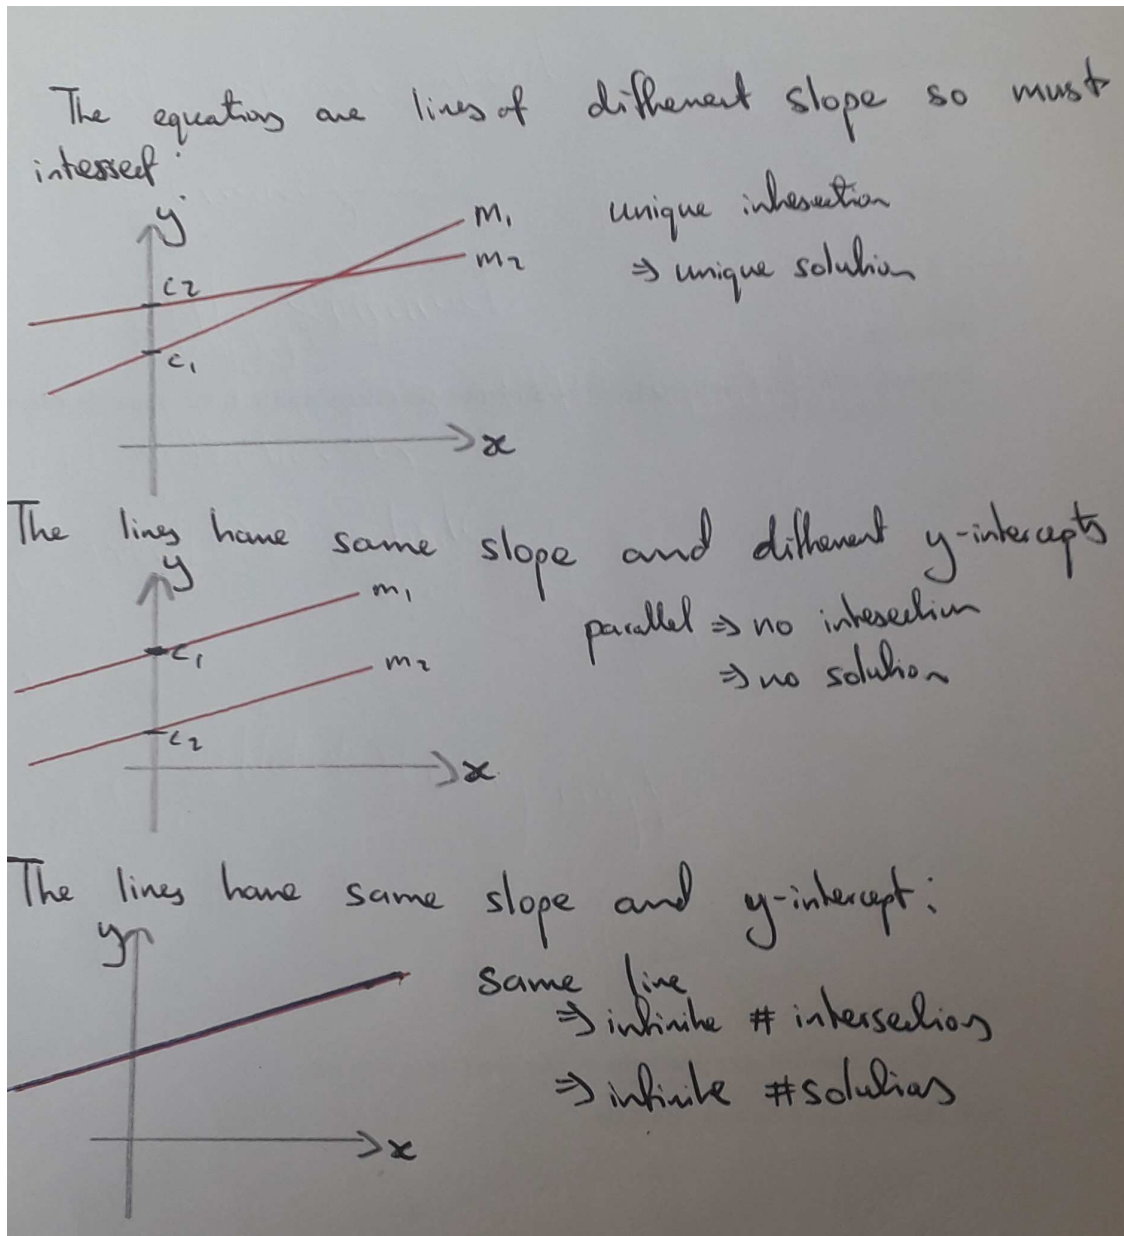 The equations are lines of different slope so must
intersect:
y
m₁
unique intersection
m₂
⇒ unique solution
c₂
c₁
x
The lines have same slope and different y-intercepts
y
m₁
parallel ⇒ no intersection
c₁
m₂
⇒ no solution
c₂
x
The lines have same slope and y-intercept:
y
same line
⇒ infinite # intersections
⇒ infinite # solutions
x